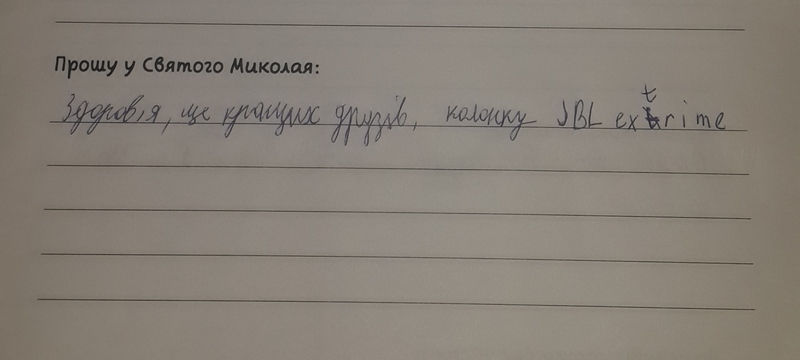 Прошу у Святого Миколая:
Здоров'я, ще кращих друзів, колонку JBL extrime